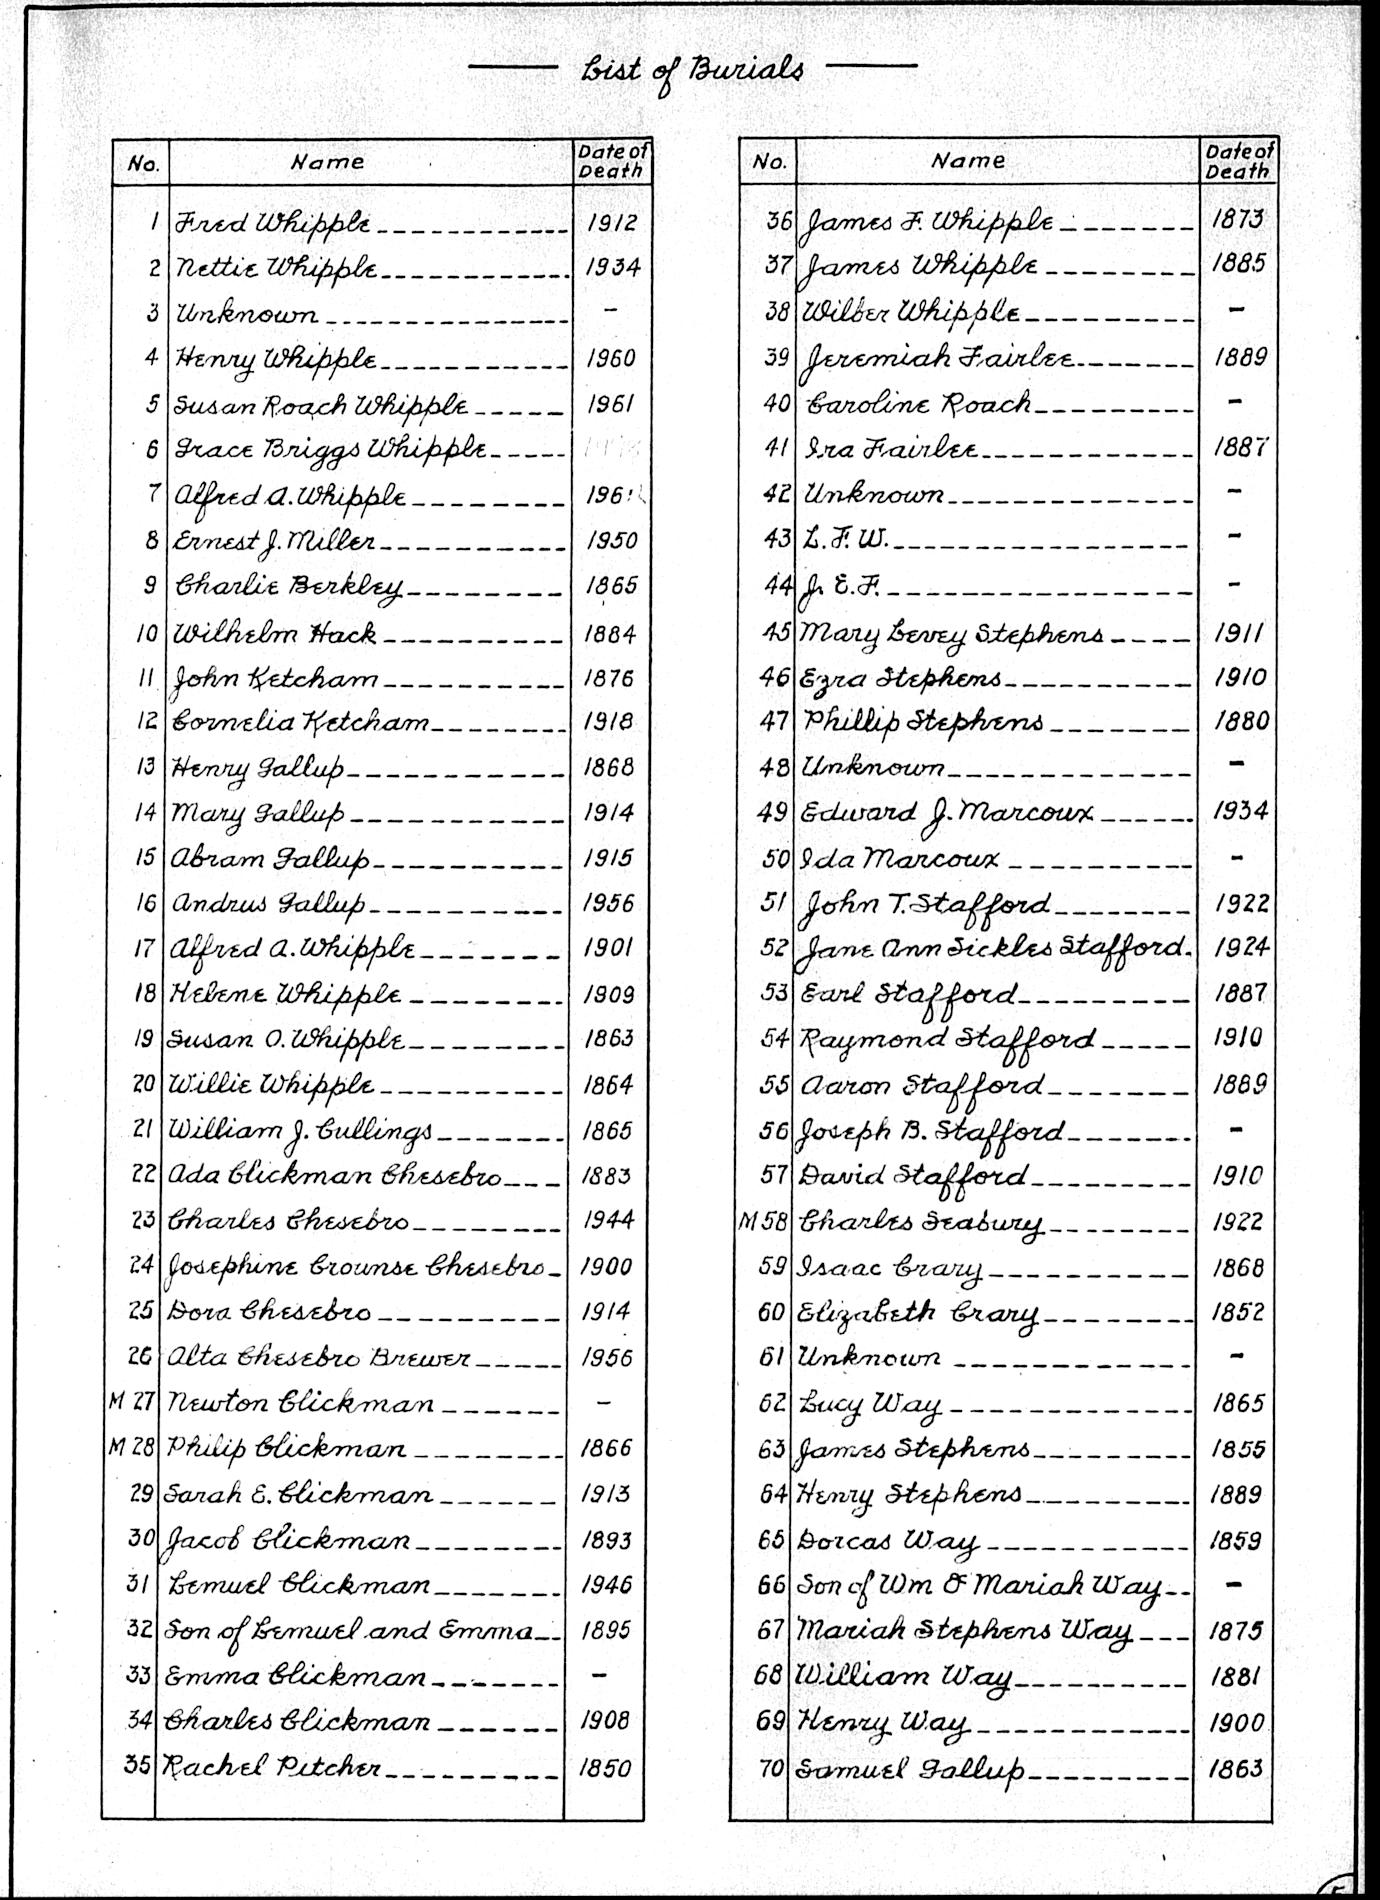 List of Burials
No. Name Date of Death
1 Fred Whipple 1912
2 Nettie Whipple 1934
3 Unknown –
4 Henry Whipple 1960
5 Susan Roach Whipple 1961
6 Grace Briggs Whipple
7 Alfred A. Whipple
8 Ernest J. Miller 1950
9 Charlie Berkley 1865
10 Wilhelm Hack 1884
11 John Ketcham 1876
12 Cornelia Ketcham 1918
13 Henry Gallup 1868
14 Mary Gallup 1914
15 Abram Gallup 1915
16 Andrus Gallup 1956
17 Alfred A. Whipple 1901
18 Helene Whipple 1909
19 Susan O. Whipple 1863
20 Willie Whipple 1864
21 William J. Cullings 1865
22 Ada Clickman Chesebro 1883
23 Charles Chesebro 1944
24 Josephine Crounse Chesebro 1900
25 Dora Chesebro 1914
26 Alta Chesebro Brewer 1956
M 27 Newton Clickman –
M 28 Philip Clickman 1866
29 Sarah E. Clickman 1913
30 Jacob Clickman 1893
31 Lemuel Clickman 1946
32 Son of Lemuel and Emma 1895
33 Emma Clickman –
34 Charles Clickman 1908
35 Rachel Pitcher 1850
No. Name Date of Death
36 James F. Whipple 1873
37 James Whipple 1885
38 Wilber Whipple –
39 Jeremiah Fairlee 1889
40 Caroline Roach –
41 Ira Fairlee 1887
42 Unknown –
43 L. F. W. –
44 J. E. F. –
45 Mary Levey Stephens 1911
46 Ezra Stephens 1910
47 Phillip Stephens 1880
48 Unknown –
49 Edward J. Marcoux 1934
50 Ida Marcoux –
51 John T. Stafford 1922
52 Jane Ann Sickles Stafford 1924
53 Earl Stafford 1887
54 Raymond Stafford 1910
55 Aaron Stafford 1889
56 Joseph B. Stafford –
57 David Stafford 1910
M 58 Charles Seabury 1922
59 Isaac Crary 1868
60 Elizabeth Crary 1852
61 Unknown –
62 Lucy Way 1865
63 James Stephens 1855
64 Henry Stephens 1889
65 Dorcas Way 1859
66 Son of Wm & Mariah Way –
67 Mariah Stephens Way 1875
68 William Way 1881
69 Henry Way 1900
70 Samuel Gallup 1863